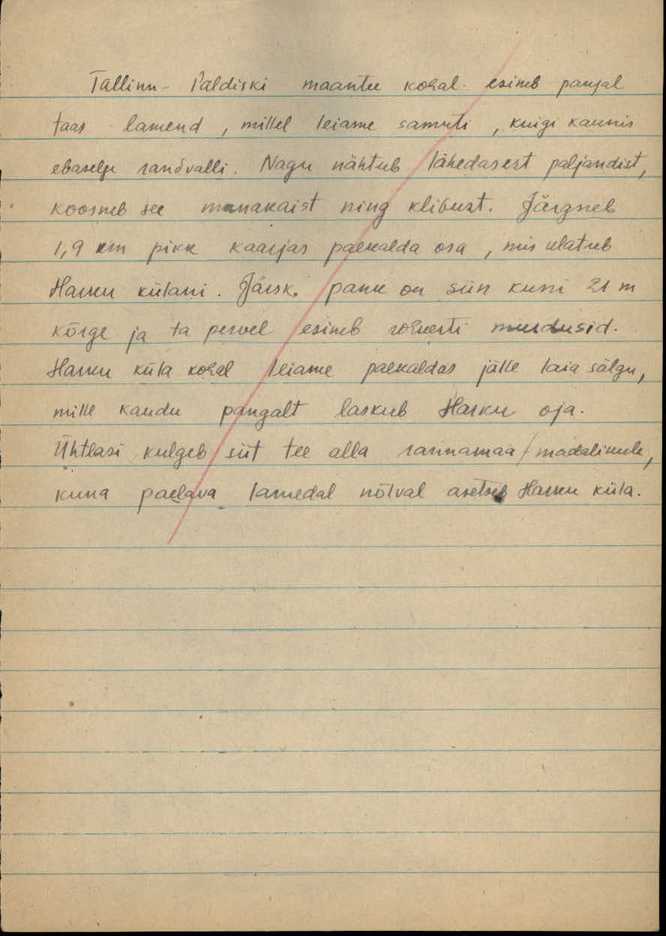 Tallinn-Paldiski maantee kohal esineb pangal
taas lamend, millel leiame samuti, kuigi kaunis
ebaselge randvalli. Nagu nähtub lähedasest paljandist,
koosneb see munakaist ning klibust. Järgneb
1,9 km pikk kaarjas paekalda osa, mis ulatub
Harku külani. Järsk pank on siin kuni 21 m
kõrge ja ta pervel esineb rohkesti murdusid.
Harku küla kohal leiame paekaldas jälle laia sälgu,
mille kaudu pangalt laskub Harku oja.
Ühtlasi kulgeb siit tee alla rannamaa/madalikule,
kuna paelava lamedal nõlval asetseb Harku küla.